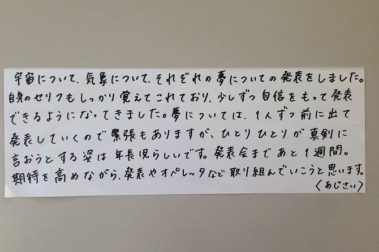 宇宙について、気象について、それぞれの夢についての発表をしました。
自身のセリフもしっかり覚えてこれており、少しずつ自信をもって発表
できるようになってきました。夢については、1人ずつ前に出て
発表していくので緊張もありますが、ひとりひとりが真剣に
言おうとする姿は年長児らしいです。発表会まであと1週間。
期待を高めながら、発表やオペレッタなど取り組んでいこうと思います。
〈あじさい〉